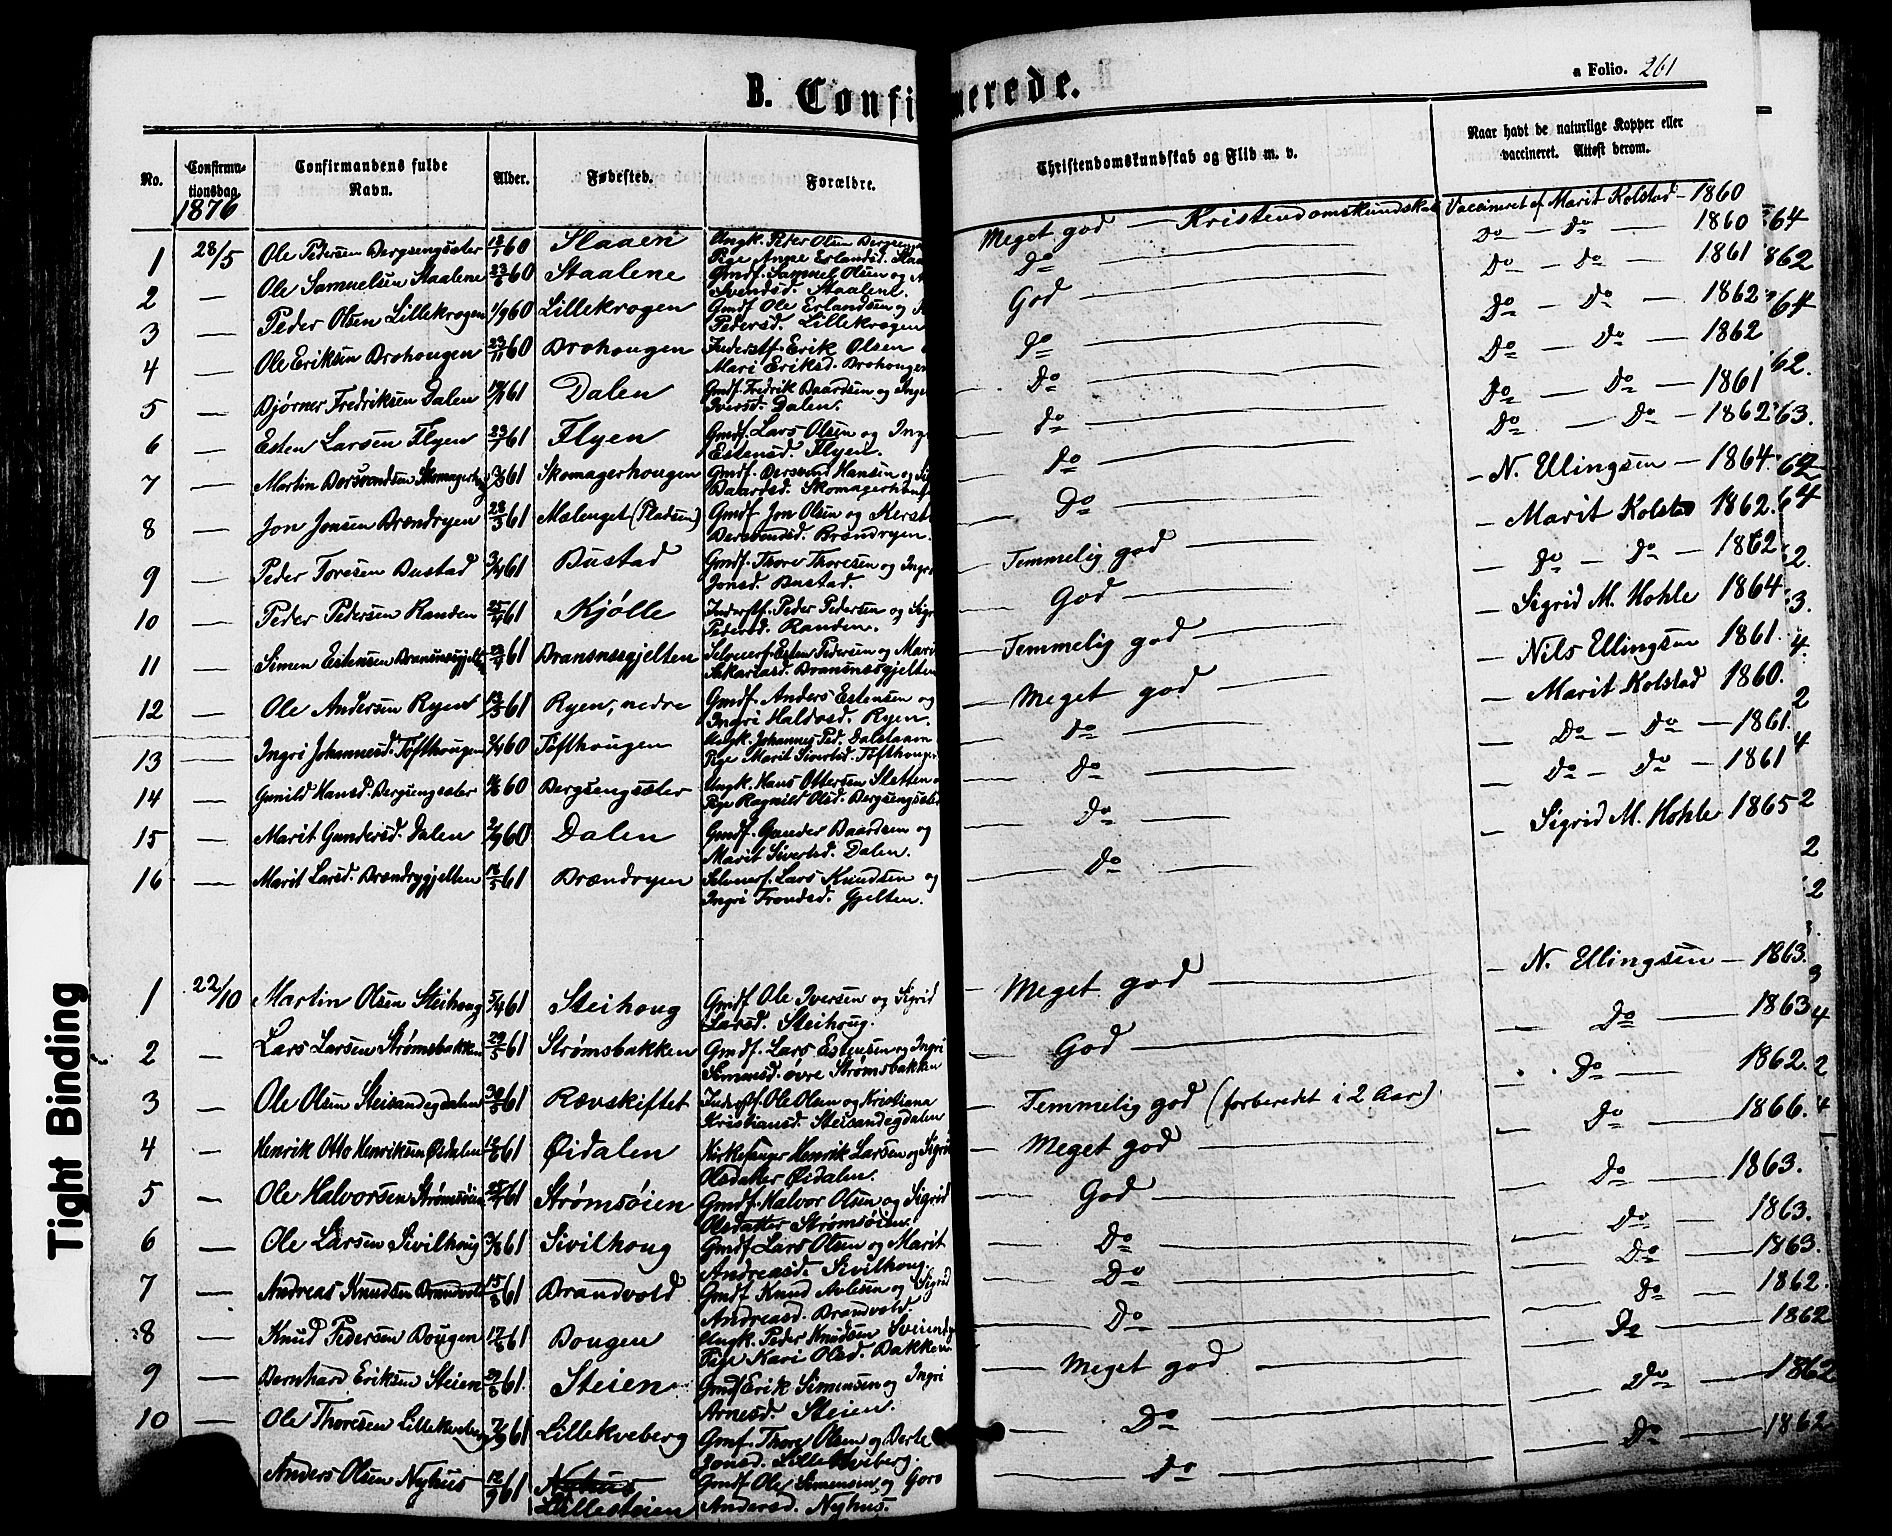 B. Confirmerede.
a Folio. 261
No.
Confirma-
tionsdag.
Confirmandens fulde
Navn.
Alder.
Fødested.
Forældre.
Christendomskundskab og Flid m. v.
Naar havt de naturlige Kopper eller
vaccineret. Attest derom.
1876
1 28/5 Ole Pedersen Bergsengsæter /60 Slaaen Ungk. Peter Olsen
Pige Anne Erlandsd. Meget god — Kristendomskundskab Vaccineret af Marit Kolstad — 1860
2 — Ole Samuelsen Staalene 60 Staalene Gmdf. Samuel Olsen og
Svendsd. Staalene. Do — Do — Do — 1860
3 — Peder Olsen Lillekrogen 1/9 60 Lillekrogen Gmdf Ole Erlandsen og
Pedersd. Lillekrogen God — Do — Do — 1861
4 — Ole Eriksen Brohougen 23/11 60 Brohougen Inderstf. Erik Olsen
Mari Eriksd. Brohougen Do — Do — Do — 1862
5 — Bjørner Fredriksen Dalen 61 Dalen Gmdf. Fredrik Baardsen og Inge
Iversd. Dalen. Do — Do — Do — 1862
6 — Esten Larsen Flyen 61 Flyen Gmdf. Lars Olsen og Ing
Estensd. Flyen. Do — Do — Do — 1861
7 — Martin Bersvendsen 61 Skomagerhougen Gmdf. Bersvend Hansen og
Baardsd. Do — Do — Do — 1862
8 — Jon Jonsen Brændryen 61 Mælenget (Pladsen) Gmdf Jon Olsen og
Bersvendsd. Brændryen. Do — N. Ellingsen — 1864
9 — Peder Toresen Bustad 61 Bustad Gmdf. Thore Thoresen og Ingri
Jonsd. Bustad. Temmelig god — Marit Kolstad 1862.
10 — Peder Pedersen Randen 61 Kjølle Inderstf. Peder Pedersen og
Pedersd. Randen. God — Do — Do — 1862
11 — Simen Estensen 61 Bransnesgjelten Selveierf. Esten Pedersen og Marit
Sakariasd. Bransnesgjelten Temmelig god — Sigrid M. Hohle 1864
12 — Ole Andersen Ryen 61 Ryen, nedre Gmdf. Anders Estensen og
Ingri Haldosd. Ryen. Meget god — Nils Ellingsen 1861.
13 — Ingri Johannesd. Tofthougen 60 Tofthougen Johannes Ped.
Pige Marit Sivertsd. Do — Marit Kolstad 1860.
14 — Gunild Hansd. Bergsengsæter 60 Bergsengsæter Ungk. Hans Ottersen Sletten
Pige Ragnild Olsd. Bergsengsæter Do — Do — Do — 1861.
15 — Marit Gundersd. Dalen 60 Dalen Gmdf. Gunder Baardsen og
Marit Sivertsd. Dalen. Do — Do — Do — 1861
16 — Marit Larsd. Brændrygjelten 61 Brændryen Selveierf. Lars Knudsen og
Ingri Trondsd. Gjelten. Do — Sigrid M. Hohle 1865
1 22/10 Martin Olsen Steihoug 61 Steihoug Gmdf Ole Iversen og Sigrid
Larsd. Steihoug. Meget god — N. Ellingsen — 1863.
2 — Lars Larsen Strømsbakken 61 Strømsbakken Gmdf. Lars Estensen og Ingri
Simensd. øvre Strømsbakken God — Do — 1863
3 — Ole Olsen Steisandegdalen 61 Rævskiftet Inderstf Ole Olsen og Kristiane
Kristiansd. Steisandegdalen Temmelig god (forberedet i 2 Aar) Do — 1862.
4 — Henrik Otto Henriksen Øidalen 61 Øidalen Kirkesanger Henrik Larsen og Sigrid
Olsdatter Øidalen. Meget god — Do — 1866.
5 — Ole Halvorsen Strømsøien 61 Strømsøien Gmdf. Halvor Olsen og Sigrid
Olsdatter Strømsøien. God — Do — 1863.
6 — Ole Larsen Sivilhoug 61 Sivilhoug Gmdf. Lars Olsen og Marit
Andreasd. Sivilhoug. Do — Do — 1863.
7 — Andreas Knudsen Brandvold 61 Brandvold Gmdf Knud Avlesen og Sigrid
Andreasd. Brandvold. Do — Do — 1863.
8 — Knud Pedersen Bougen 61 Bougen Ungk. Peder Knudsen
Pige Kari Olsd. Bakken. Do — Do — 1862.
9 — Bernhard Eriksen Steien 61. Steien Gmdf Erik Simensen og Ingri
Arnesd. Steien. Meget god — Do — 1862
10 — Ole Thoresen Lillekveberg 61 Lillekveberg Gmf. Thore Olsen og Berte
Jonsd. Lillekveberg. Do — Do — 1862
Anders Olsen Nyhus 12/9 61 Nyhus
Lillesteien Gmdf Ole Simensen og Goro
Andersd. Nyhus. Do — Do — 1862
Tight Binding